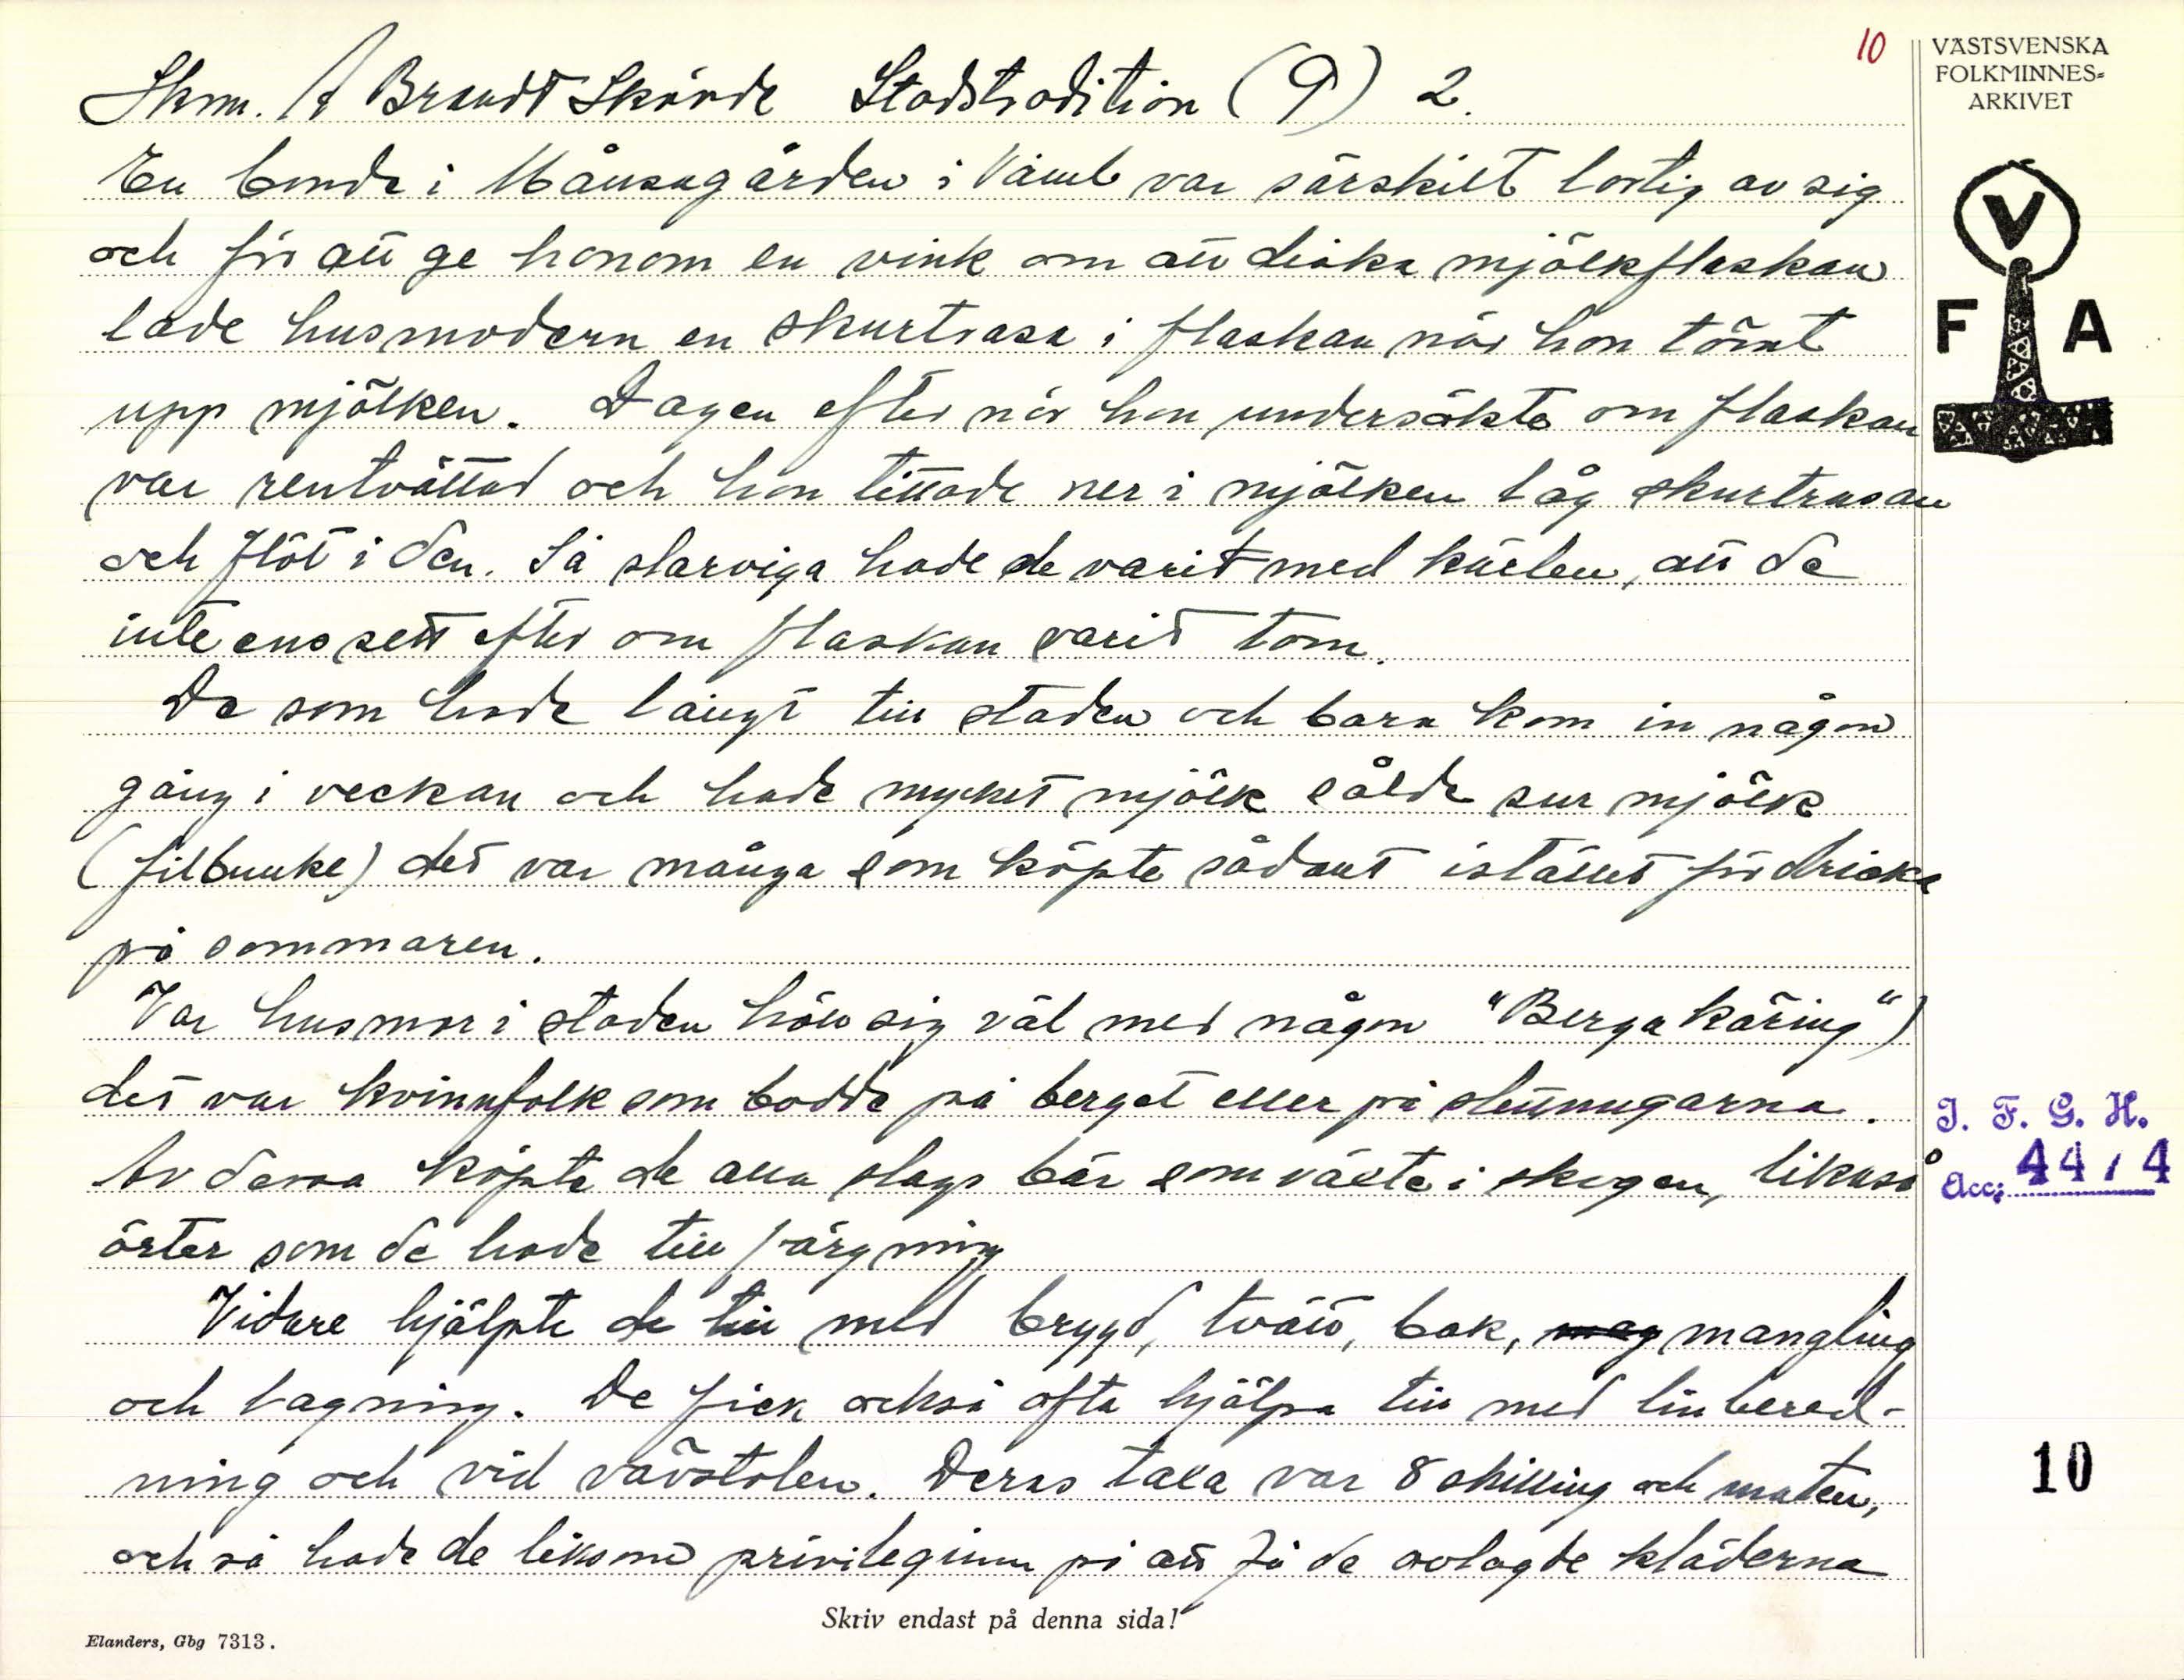 10
VÄSTSVENSKA
FOLKMINNES=
ARKIVET
Skm. A Brandt Skövde Stadstradition (9) 2.
En bonde i Månsagården i Våmb var särskilt lortig av sig
och för att ge honom en vink om att diska mjölkflaskan
lade husmodern en skurtrasa i flaskan när hon tömt
upp mjölken. Dagen efter när hon undersökte om flaskan
var rentvättad och hon tittade ner i mjölken låg skurtrasan
och flöt i den. Så slarviga hade de varit med kärlen, att de
inte ens sett efter om flaskan varit tom.
De som hade långt till staden och bara kom in någon
gång i veckan och hade mycket mjölk sålde sur mjölk
(filbunke) det var många som köpte sådant istället för dricka
på sommaren.
Var husmor i staden höll sig väl med någon "Berga käring")
det var kvinnfolk som bodde på berget eller på sluttningarna.
Av dessa köpte de alla slags bär som växte i skogen, likaså
örter som de hade till färgning
Vidare hjälpte de till med brygd, tvätt, bak, mag mangling
och lagning. De fick också ofta hjälpa till med linbered-
ning och vid vävstolen. Deras taxa var 8 skilling och maten,
och så hade de liksom privilegium på att få de avlagde kläderna
V
F A
I. F. G. H.
Acc: 44 / 4
10
Skriv endast på denna sida!
Elanders, Gbg 7313.